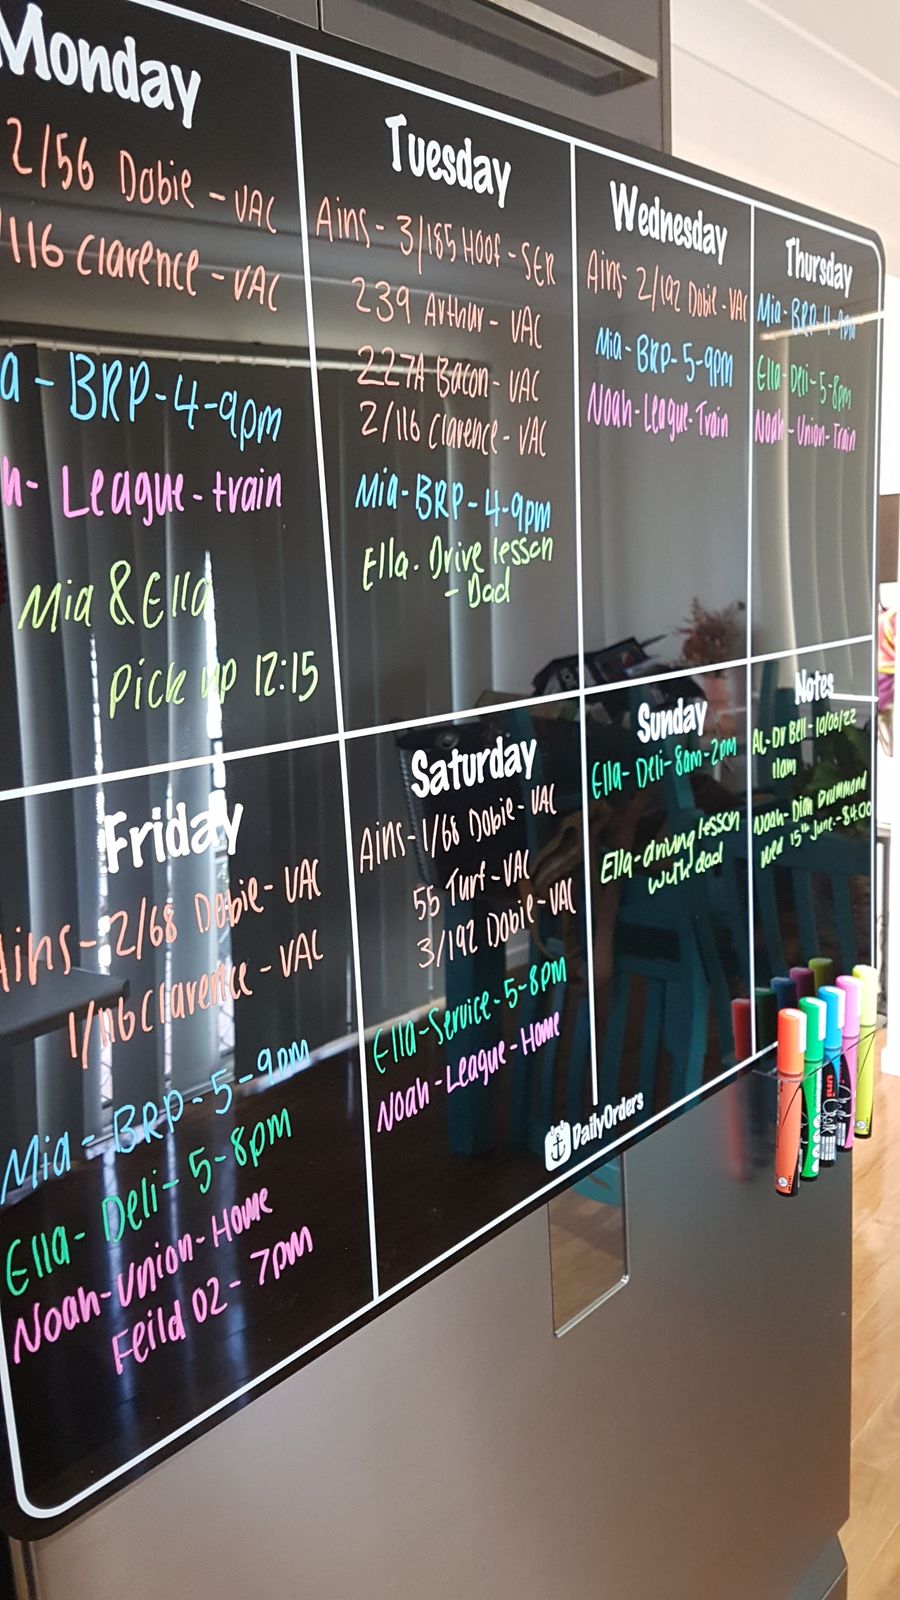 Monday
2/56 Dobie - VAC
/116 Clarence - VAC
a - BRP - 4-9pm
h - League - train
Mia & Ella
Pick up 12:15
Tuesday
Ains - 3/185 Hoof - SER
239 Arthur - VAC
227A Bacon - VAC
2/116 Clarence - VAC
Mia - BRP - 4-9pm
Ella - Drive lesson
- Dad
Wednesday
Ains - 2/192 Dobie - VAC
Mia - BRP - 5-9pm
Noah - League - Train
Thursday
Mia - BRP - 4-9pm
Ella - Deli - 5-8pm
Noah - Union - Train
Friday
Ains - 2/68 Dobie - VAC
1/116 Clarence - VAC
Mia - BRP - 5-9pm
Ella - Deli - 5-8pm
Noah - Union - Home
Feild 02 - 7pm
Saturday
Ains - 1/68 Dobie - VAC
55 Turf - VAC
3/192 Dobie - VAC
Ella - Service - 5-8pm
Noah - League - Home
Sunday
Ella - Deli - 8am - 2pm
Ella - driving lesson
with dad
Notes
AL - Dr Bell - 10/06/22
11am
Noah - Dion Drummond
Wed 15th June. - $4:00
DailyOrders
uni